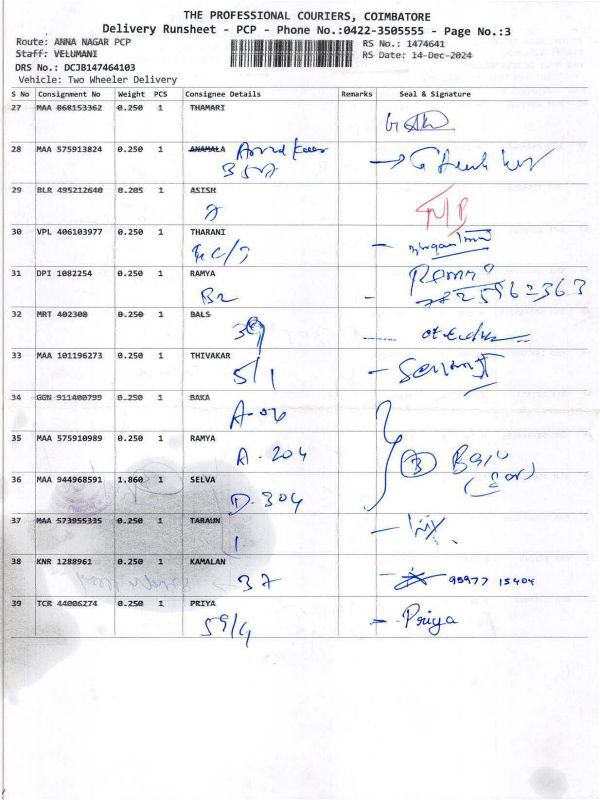 THE PROFESSIONAL COURIERS, COIMBATORE
Delivery Runsheet - PCP - Phone No.:0422-3505555 - Page No.:3
Route: ANNA NAGAR PCP RS No.: 1474641
Staff: VELUMANI RS Date: 14-Dec-2024
DRS No.: DCJB147464103
Vehicle: Two Wheeler Delivery
S No Consignment No Weight PCS Consignee Details Remarks Seal & Signature
27 MAA 868153362 0.250 1 THAMARI
28 MAA 575913824 0.250 1 ANAMALA
29 BLR 495212640 0.205 1 ASISH
2
30 VPL 406103977 0.250 1 THARANI
31 DPI 1082254 0.250 1 RAMYA
B2
32 MRT 402308 0.250 1 BALS
39
33 MAA 101196273 0.250 1 THIVAKAR
5/1
34 GGN 911400799 0.250 1 BAKA
A-04
35 MAA 575910989 0.250 1 RAMYA
A-204
36 MAA 944968591 1.860 1 SELVA
D-304
37 MAA 573955335 0.250 1 TARAUN
1
38 KNR 1288961 0.250 1 KAMALAN
37 95977 15404
39 TCR 44006274 0.250 1 PRIYA
59/4 - Priya